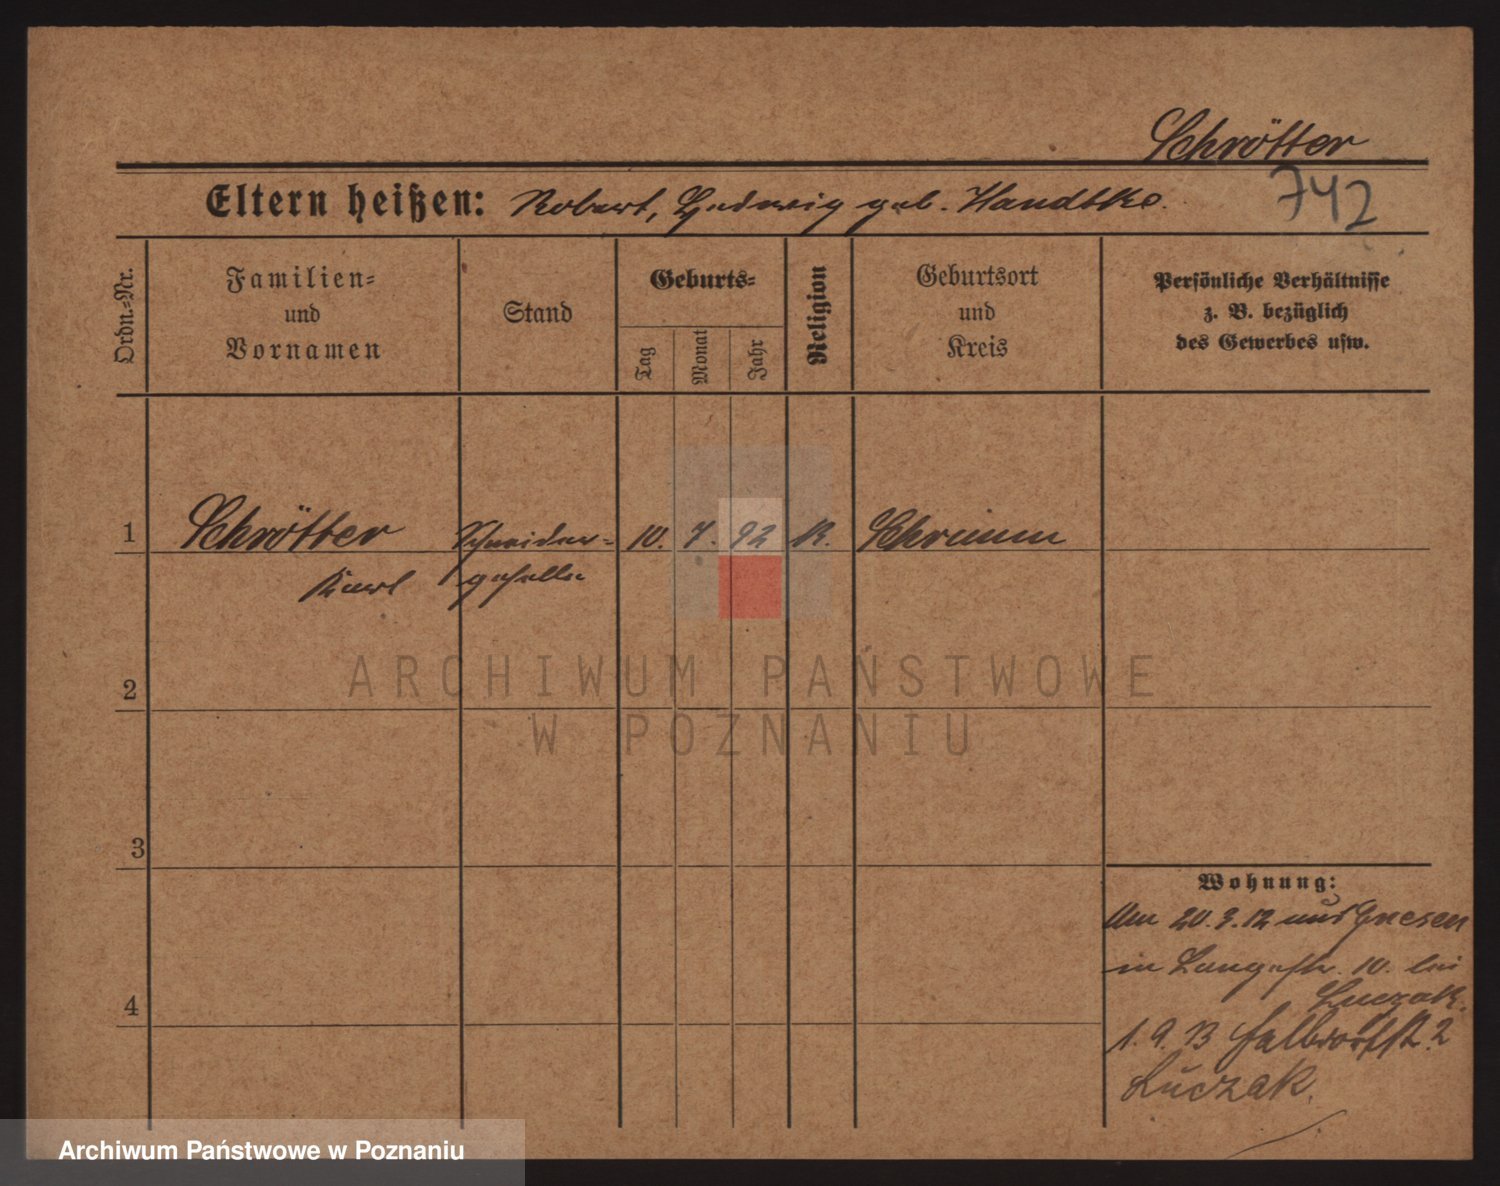 Schrötter
742
Eltern heißen: Robert, Hedwig geb. Handtke.
Ordn.-Nr.
Familien-
und
Vornamen
Stand
Geburts-
Tag
Monat
Jahr
Religion
Geburtsort
und
Kreis
Persönliche Verhältnisse
z. B. bezüglich
des Gewerbes usw.
1 Schrötter Schneider- 10. 7. 92 K. Schrimm
Karl geselle
2
3
4
Wohnung:
Am 20. 3. 12 aus Gnesen
in Langestr. 10. bei
Luczak.
1. 9. 13 Halbdorfstr. 2
Luczak.
ARCHIWUM PAŃSTWOWE
W POZNANIU
Archiwum Państwowe w Poznaniu